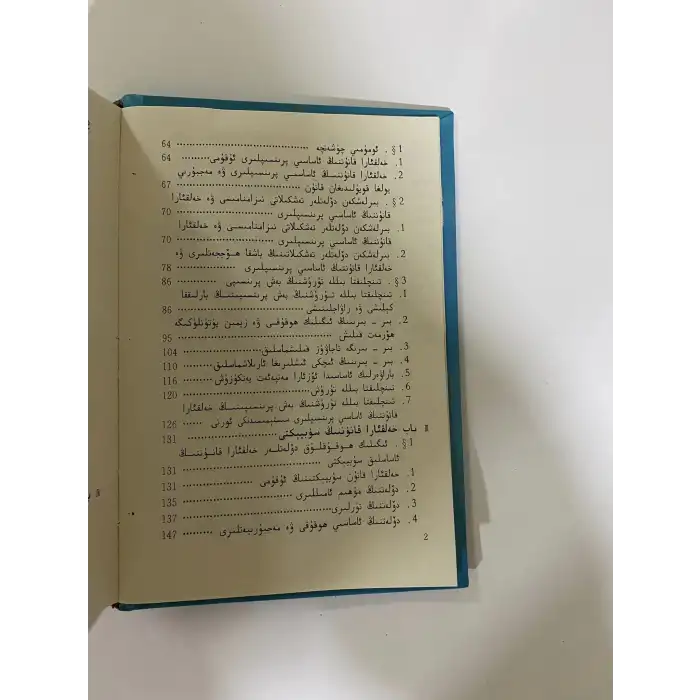 § 1 . ئومۇمىي چۈشەنچە ........ 64
1. خەلقئارا قانۇننىڭ ئاساسىي پرىنسىپلىرى ئۇقۇمى ........ 64
2. خەلقئارا قانۇننىڭ ئاساسىي پرىنسىپلىرى ۋە مەجبۇرىي
يولغا قويۇلىدىغان قانۇن ........ 67
§ 2 . بىرلەشكەن دۆلەتلەر تەشكىلاتى نىزامنامىسى ۋە خەلقئارا
قانۇننىڭ ئاساسىي پرىنسىپلىرى ........ 70
1. بىرلەشكەن دۆلەتلەر تەشكىلاتى نىزامنامىسى ۋە خەلقئارا
قانۇننىڭ ئاساسىي پرىنسىپلىرى ........ 70
2. بىرلەشكەن دۆلەتلەر تەشكىلاتىنىڭ باشقا ھۆججەتلىرى ۋە
خەلقئارا قانۇننىڭ ئاساسىي پرىنسىپلىرى ........ 78
§ 3 . تىنچلىقتا بىللە تۇرۇشنىڭ بەش پرىنسىپى ........ 86
1. تىنچلىقتا بىللە تۇرۇشنىڭ بەش پرىنسىپىنىڭ بارلىققا
كېلىشى ۋە راۋاجلىنىشى ........ 86
2. بىر - بىرىنىڭ ئىگىلىك ھوقۇقى ۋە زېمىن پۈتۈنلۈكىگە
ھۆرمەت قىلىش ........ 95
3. بىر - بىرىگە تاجاۋۇز قىلىشماسلىق ........ 104
4. بىر - بىرىنىڭ ئىچكى ئىشلىرىغا ئارىلاشماسلىق ........ 110
5. باراۋەرلىك ئاساسىدا ئۆزئارا مەنپەئەت يەتكۈزۈش ........ 116
6. تىنچلىقتا بىللە تۇرۇش ........ 120
7. تىنچلىقتا بىللە تۇرۇشنىڭ بەش پرىنسىپىنىڭ خەلقئارا
قانۇننىڭ ئاساسىي پرىنسىپلىرى سىستېمىسىدىكى ئورنى ........ 126
Ⅱ باب خەلقئارا قانۇننىڭ سۇبيېكتى ........ 131
§ 1 . ئىگىلىك ھوقۇقلۇق دۆلەتلەر خەلقئارا قانۇننىڭ
ئاساسلىق سۇبيېكتى ........ 131
1. خەلقئارا قانۇن سۇبيېكتىنىڭ ئۇقۇمى ........ 131
2. دۆلەتنىڭ مۇھىم ئامىللىرى ........ 135
3. دۆلەتنىڭ تۈرلىرى ........ 137
4. دۆلەتنىڭ ئاساسىي ھوقۇقى ۋە مەجبۇرىيەتلىرى ........ 147
2